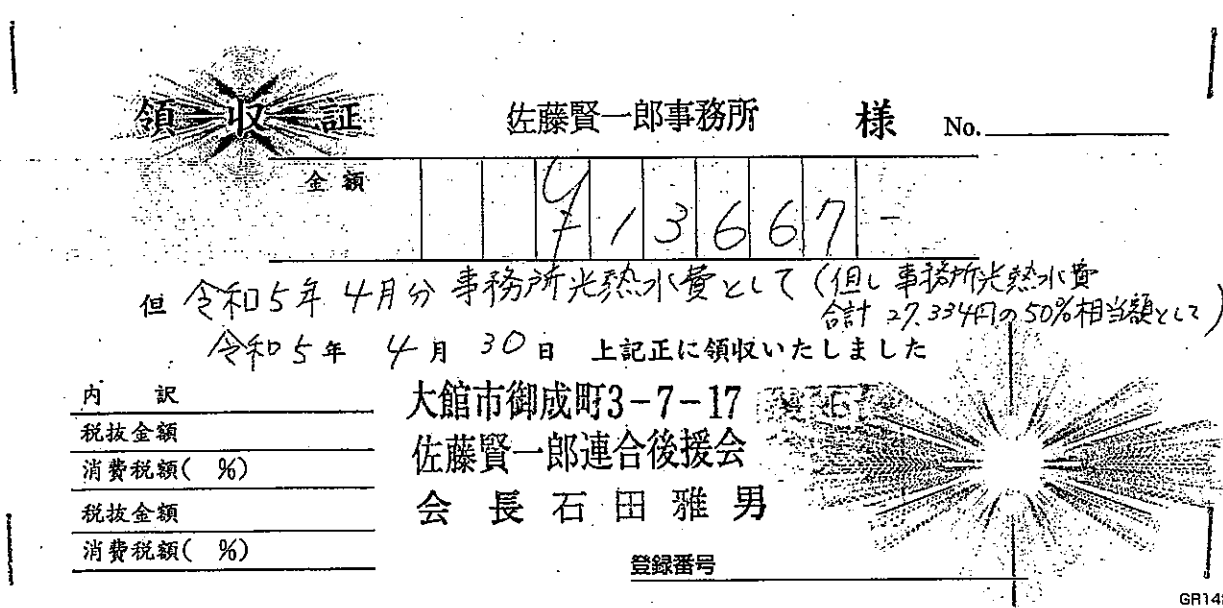 領収証
佐藤賢一郎事務所 様 No.
金額 ¥13667-
但 令和5年4月分 事務所光熱水費として(但し事務所光熱水費
合計 27,334円の50%相当額として)
令和5年 4月 30日 上記正に領収いたしました
内 訳
税抜金額
消費税額( %)
税抜金額
消費税額( %)
大館市御成町3-7-17
佐藤賢一郎連合後援会
会 長 石 田 雅 男
登録番号